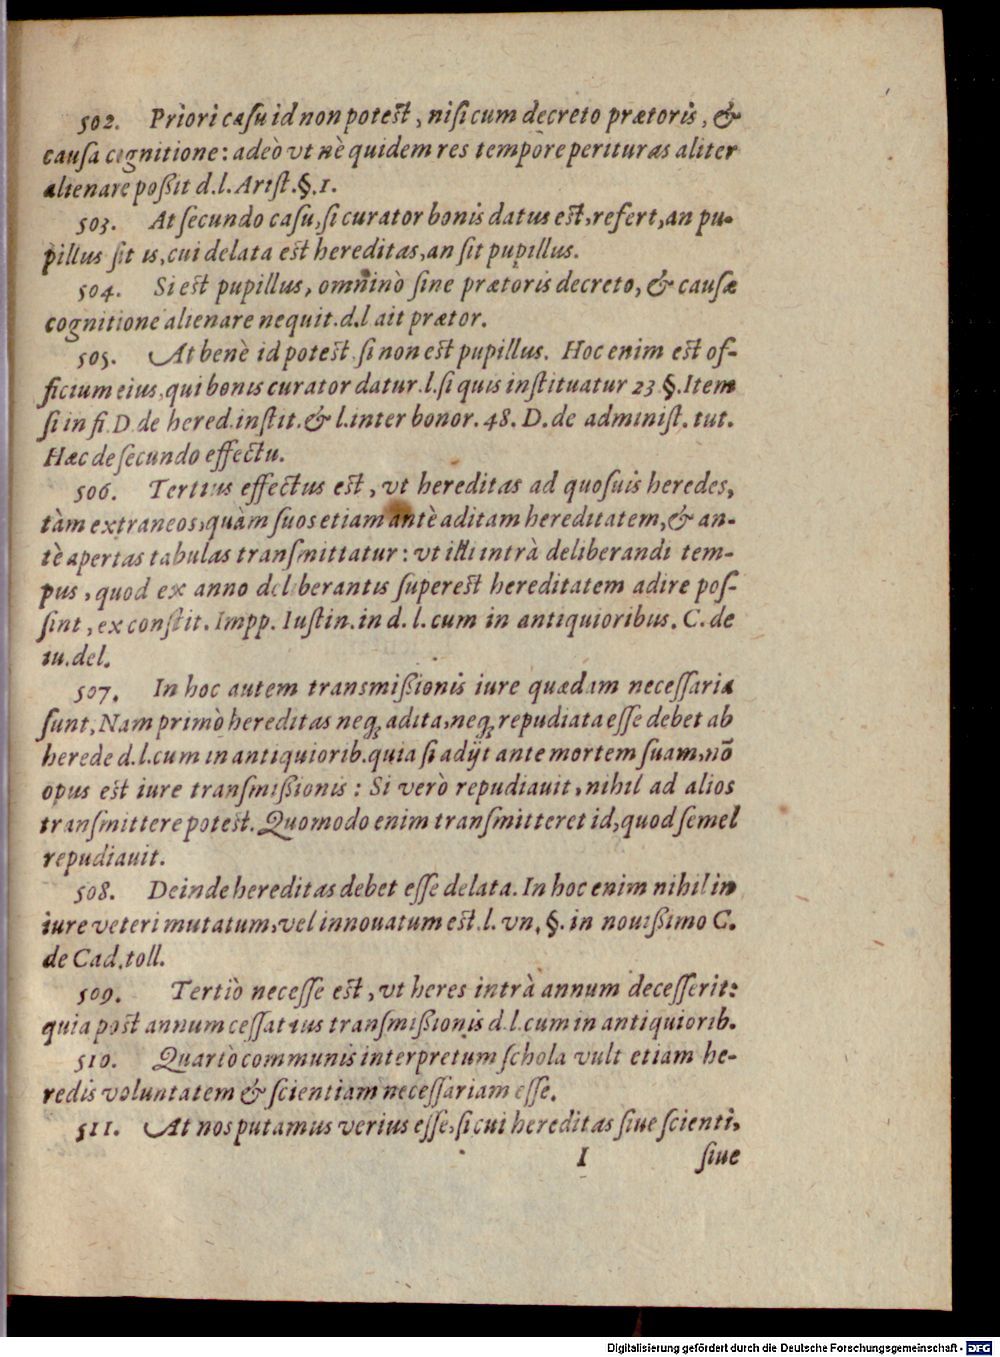 502. Priori casu id non potest, nisi cum decreto prætoris, &
causa cognitione: adeò vt nè quidem res tempòre perituras aliter
alienare poßit d.l. Arist. §. 1.
503. At secundo casu, si curator bonis datus est, refert, an pu-
pillus sit is, cui delata est hereditas, an sit pupillus.
504. Si est pupillus, omninò sine prætoris decreto, & causæ
cognitione alienare nequit. d.l ait prætor.
505. At benè id potest si non est pupillus. Hoc enim est of-
ficium eius, qui bonis curator datur. l. si quis instituatur 23 §. Item
si in fi. D. de hered. instit. & l. inter bonor. 48. D. de administ. tut.
Hæc de secundo effectu.
506. Tertius effectus est, vt hereditas ad quosuis heredes,
tàm extraneos, quàm suos etiam antè aditam hereditatem, & an-
tè apertas tabulas transmittatur: vt illi intrà deliberandi tem-
pus, quod ex anno deliberantis superest hereditatem adire pos-
sint, ex constit. Impp. Iustin. in d. l. cum in antiquioribus. C. de
iu. del.
507. In hoc autem transmißionis iure quædam necessaria
sunt, Nam primò hereditas neq; adita, neq; repudiata esse debet ab
herede d.l. cum in antiquiorib. quia si adijt ante mortem suam, nō
opus est iure transmißionis: Si verò repudiauit, nihil ad alios
transmittere potest. Quomodo enim transmitteret id, quod semel
repudiauit.
508. Deinde hereditas debet esse delata. In hoc enim nihil in
iure veteri mutatum, vel innouatum est. l. vn. §. in nouißimo C.
de Cad. toll.
509. Tertiò necesse est, vt heres intrà annum decesserit:
quia post annum cessat ius transmißionis d.l. cum in antiquiorib.
510. Quartò communis interpretum schola vult etiam he-
redis voluntatem & scientiam necessariam esse.
511. At nos putamus verius esse, si cui hereditas siue scienti,
I siue
Digitalisierung gefördert durch die Deutsche Forschungsgemeinschaft - DFG